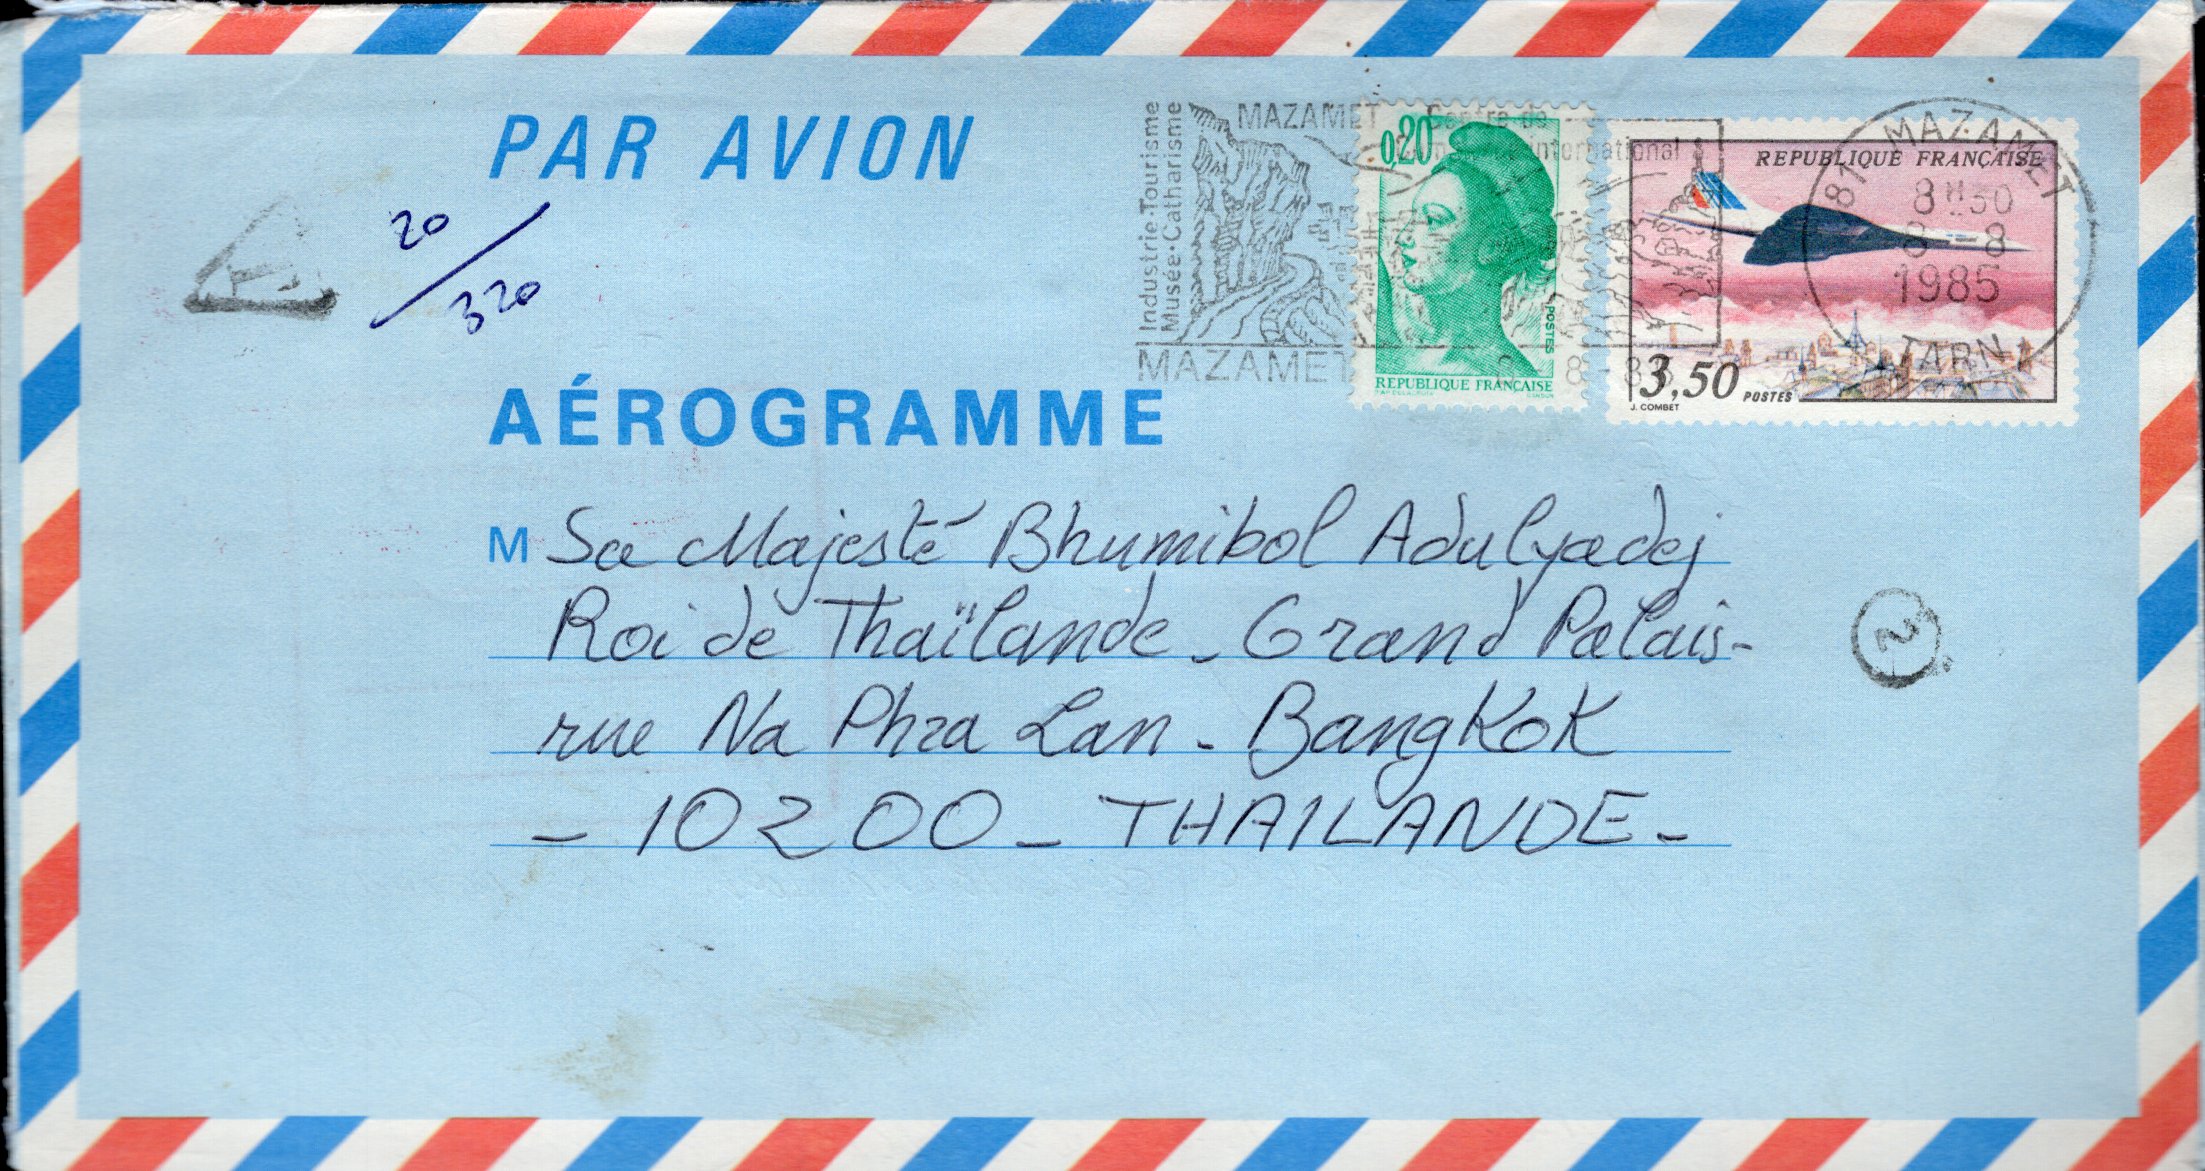 PAR AVION
20
320
AÉROGRAMME
Industrie-Tourisme
Musée-Catharisme
MAZAMET Centre de
international
MAZAMET
8 - 8 -
0,20
POSTES
REPUBLIQUE FRANÇAISE
REPUBLIQUE FRANÇAISE
3,50 POSTES
J. COMBET
81 MAZAMET
8H30
8 - 8
1985
TARN
M Sa Majesté Bhumibol Adulyadej
Roi de Thaïlande - Grand Palais -
rue Na Phra Lan - BangKoK
- 10200 - THAILANDE -
2